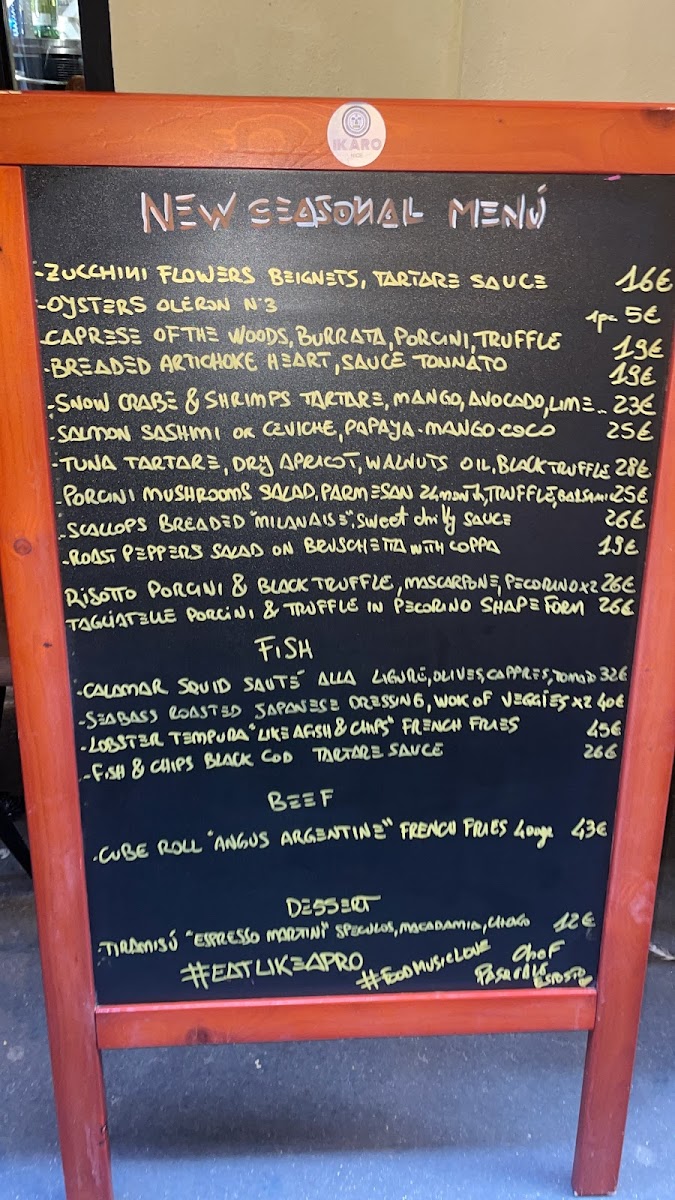 IKARO
NEW SEASONAL MENÚ
-ZUCCHINI FLOWERS BEIGNETS, TARTARE SAUCE 16€
-OYSTERS OLERON N°3 1pc 5€
-CAPRESE OF THE WOODS, BURRATA, PORCINI, TRUFFLE 19€
-BREADED ARTICHOKE HEART, SAUCE TONNATO 19€
-SNOW CRABE & SHRIMPS TARTARE, MANGO, AVOCADO, LIME.. 23€
-SALMON SASHIMI OR CEVICHE, PAPAYA-MANGO-COCO 25€
-TUNA TARTARE, DRY APRICOT, WALNUTS OIL, BLACK TRUFFLE 28€
PORCINI MUSHROOMS SALAD, PARMESAN 24 month, TRUFFLE, BALSAMIC 25€
-SCALLOPS BREADED "MILANAISE", Sweet chilly SAUCE 26€
-ROAST PEPPERS SALAD ON BRUSCHETTA WITH COPPA 19€
RISOTTO PORCINI & BLACK TRUFFLE, MASCARPONE, PECORINO X2 26€
TAGLIATELLE PORCINI & TRUFFLE IN PECORINO SHAPE FORM 26€
FISH
-CALAMAR SQUID SAUTÉ ALLA LIGURE, OLIVES, CAPPRES, TOMATO 32€
-SEABASS ROASTED JAPANESE DRESSING, WOK OF VEGGIES X2 40€
-LOBSTER TEMPURA "LIKE A FISH & CHIPS" FRENCH FRIES 45€
-FISH & CHIPS BLACK COD TARTARE SAUCE 26€
BEEF
-CUBE ROLL "ANGUS ARGENTINE" FRENCH FRIES 43€
DESSERT
-TIRAMISÚ "ESPRESSO MARTINI" SPECULOS, MACADAMIA, 12€
#EATLIKEAPRO #FOODMUSICLOVE CHEF
ESPOSITO